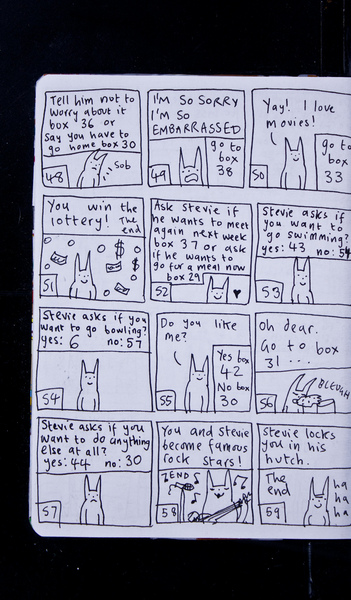 Tell him not to
worry about it
box 36 or
say you have to
go home box 30
sob
48
I'M SO SORRY
I'M SO
EMBARRASSED
go to
box
38
49
Yay! I love
movies!
go to
box
33
50
You win the
lottery! The
end
$
$
51
Ask Stevie if
he wants to meet
again next week
box 37 or ask
if he wants to
go for a meal now
box 29
52
Stevie asks if
you want to
go swimming?
yes: 43 no: 54
53
Stevie asks if you
want to go bowling?
yes: 6 no: 57
54
Do you like
me?
Yes box
42
No box
30
55
Oh dear.
Go to box
31 ...
BLEUGH
56
Stevie asks if you
want to do anything
else at all?
yes: 44 no: 30
57
You and Stevie
become famous
rock stars!
END
58
Stevie locks
you in his
hutch.
The
end
ha
ha
ha
59